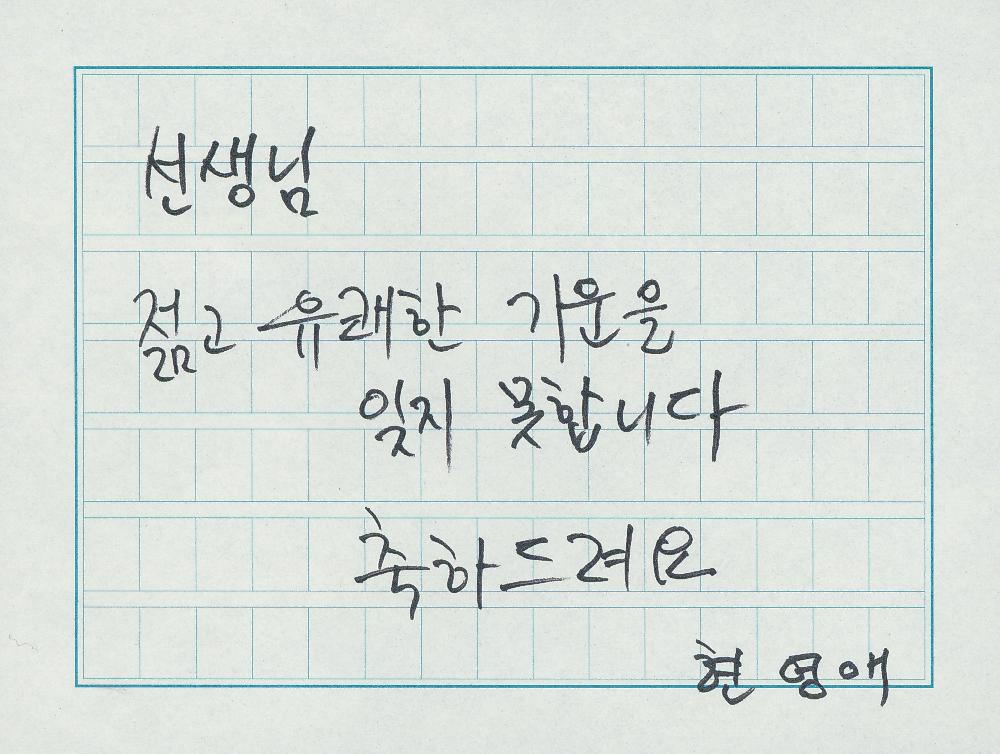 선생님
젊고 유쾌한 기운을
잊지 못합니다
축하드려요
현영애